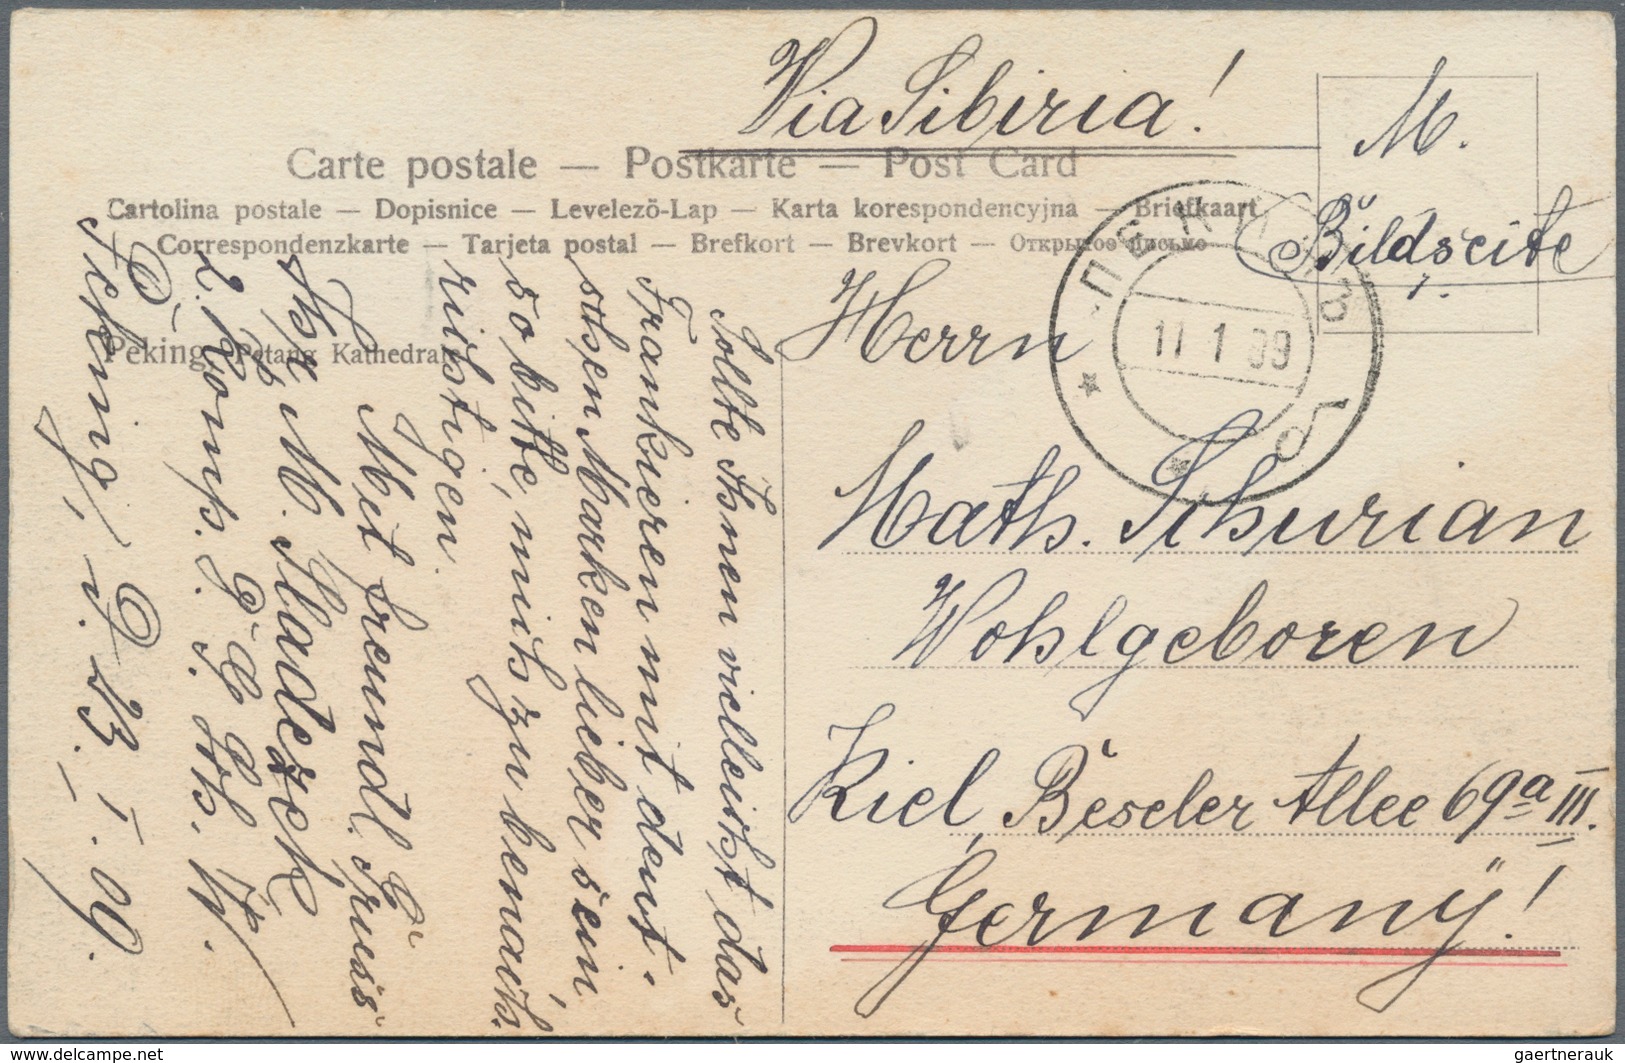 Via Sibiria!
M.
Bildseite
Carte postale — Postkarte — Post Card
Cartolina postale — Dopisnice — Levelező-Lap — Karta korespondencyjna — Briefkaart
Correspondenzkarte — Tarjeta postal — Brefkort — Brevkort — Открытое письмо
Peking, Petang Kathedrale
ПЕКИНЪ
11 1 09
б
Herrn
Math. Schurian
Wohlgeboren
Kiel, Beseler Allee 69a III.
Germany!
Sollte Ihnen vielleicht das
Frankieren mit deut-
schen Marken lieber sein,
so bitte, mich zu benach-
richtigen.
Mit freundl. Gruss
Ihr M.
2. Komp.
Peking, d. 23. I. 09.
gaertnerauk